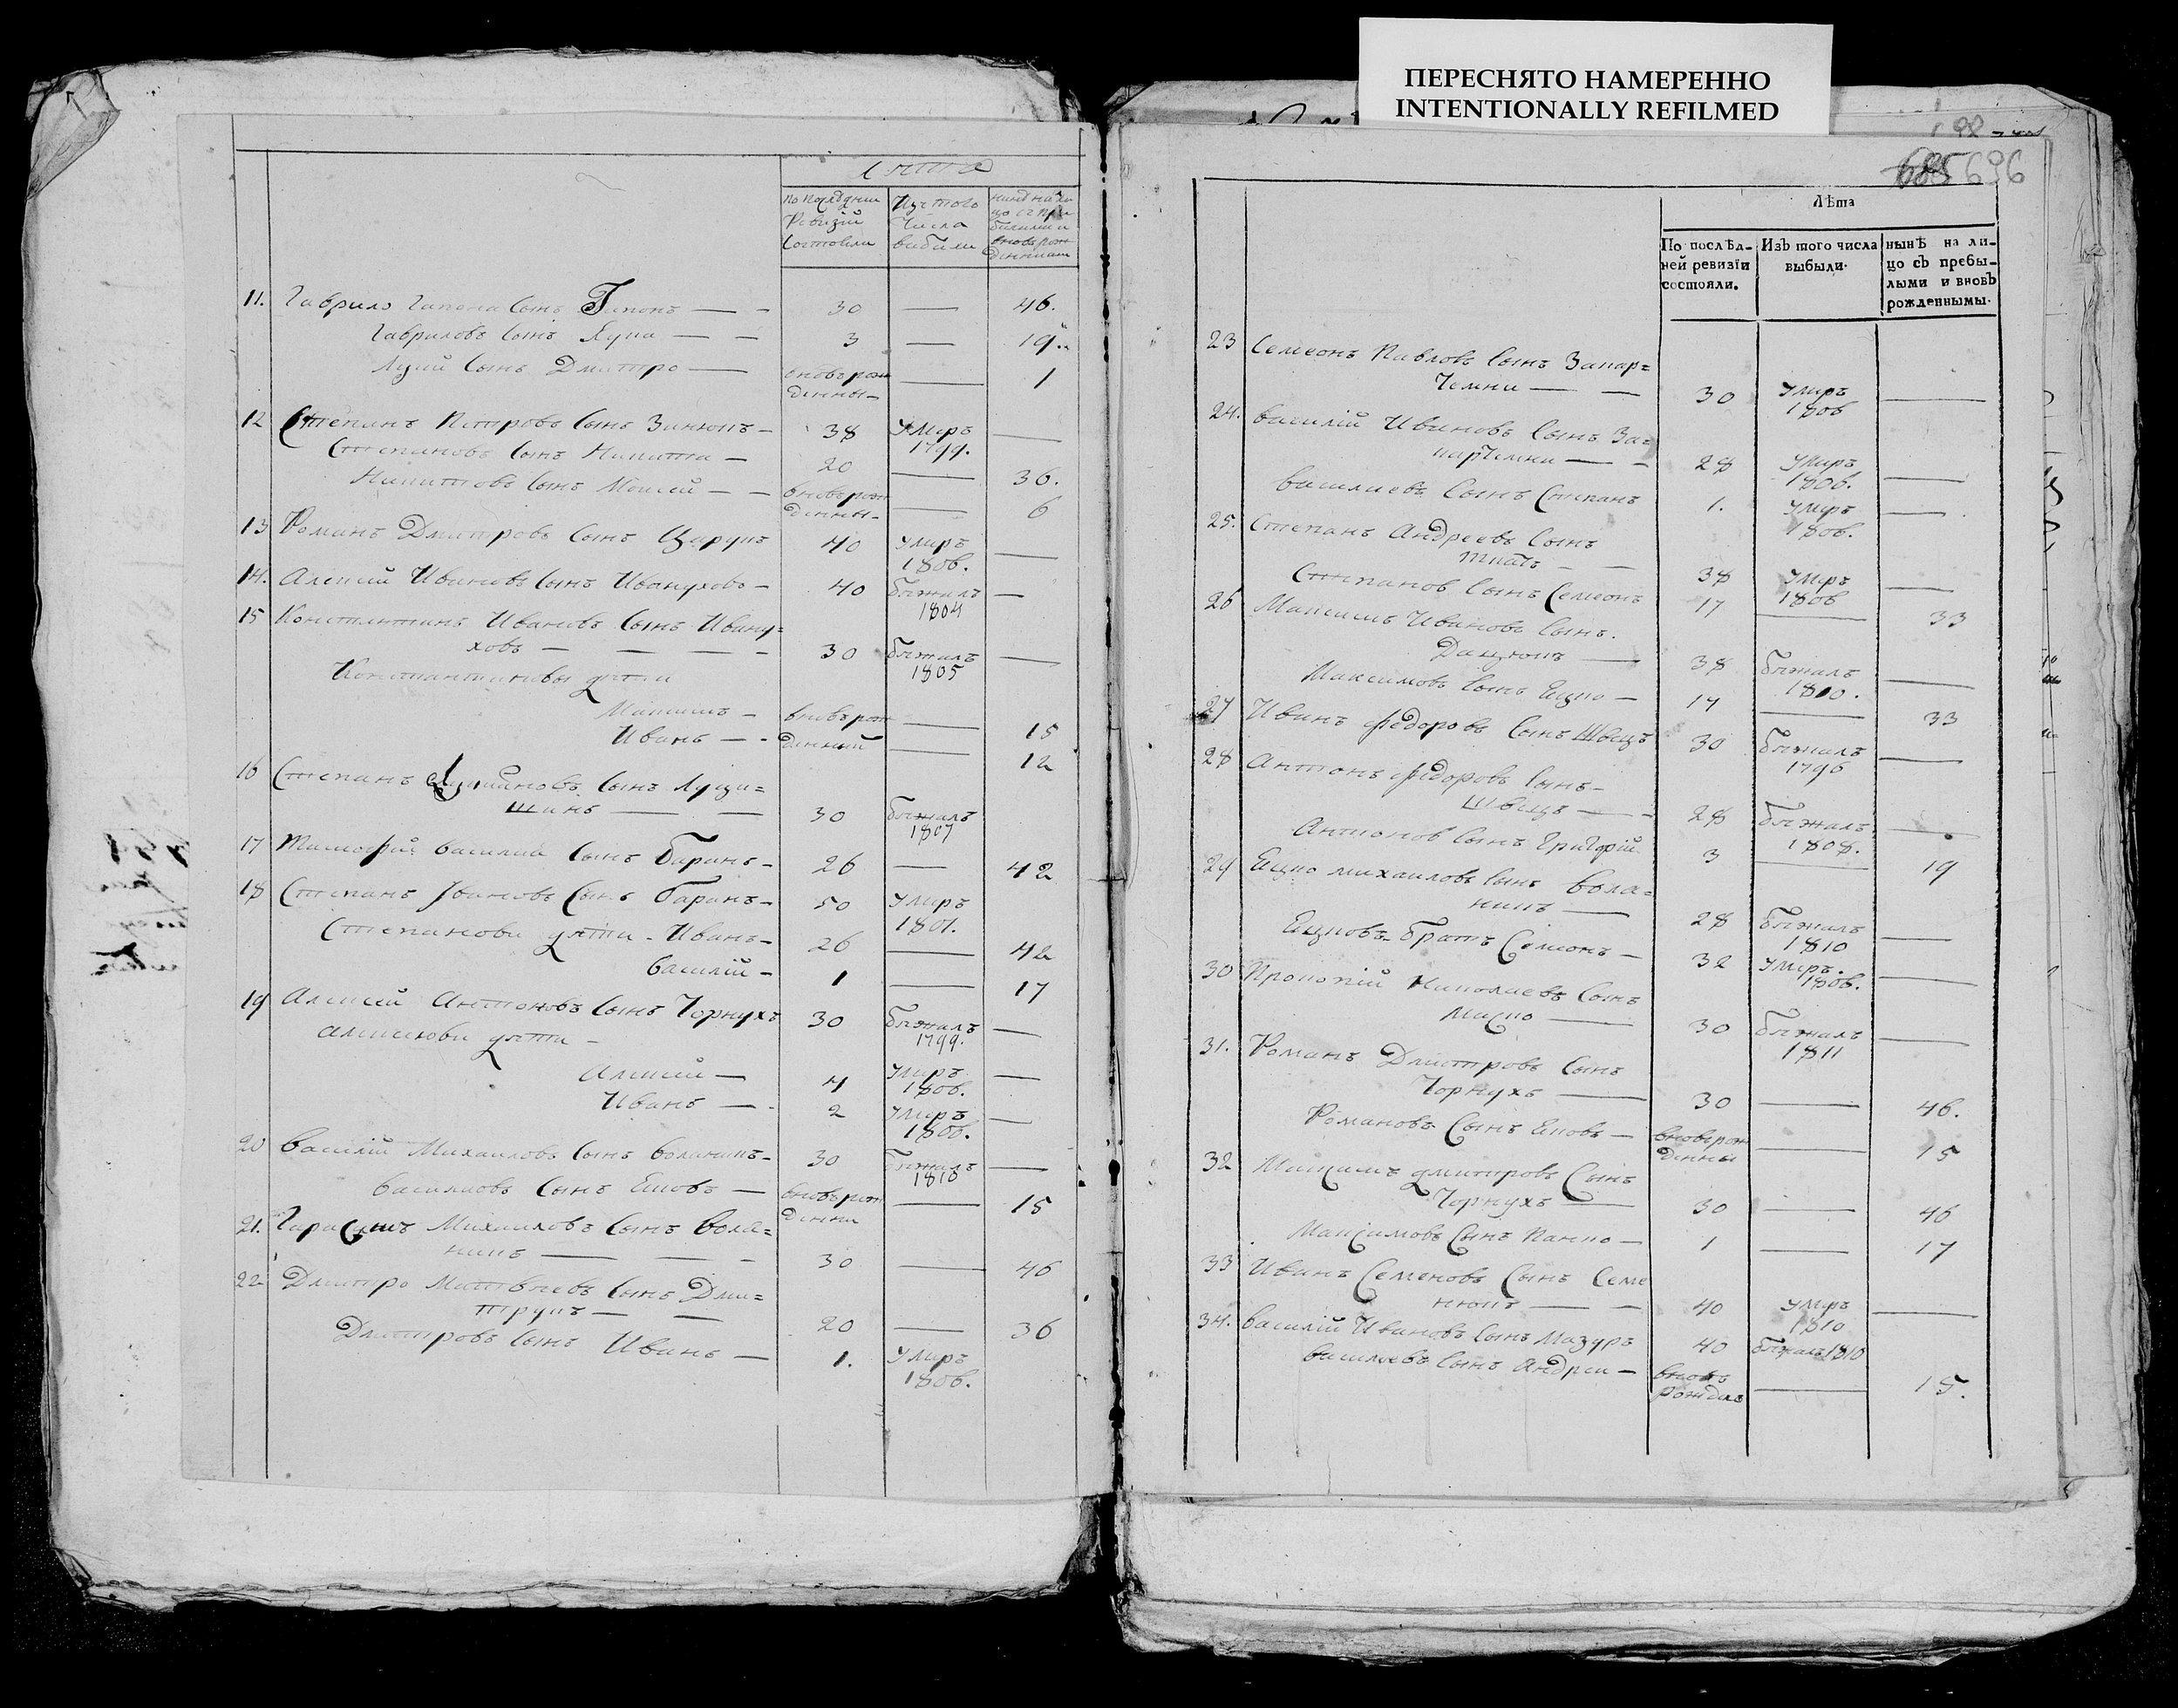 ПЕРЕСНЯТО НАМЕРЕННО
INTENTIONALLY REFILMED
лѣта
По последнеи Ревизiи состояли
Изъ того числа выбыли
11. Гаврило Гапона сынъ Гапонъ — 30 — 46.
Гавриловъ сынъ Яцко — 3 — 19.
сынъ Дмитро — вновьрожденны — 1
12 Степанъ Петровъ сынъ — 38 умиръ 1799. —
Степановъ сынъ Никита — 20 — 36.
Никитовъ сынъ Моисей — вновьрожденны — 6
13 Романъ Дмитровъ сынъ Царукъ 40 умиръ 1806. —
14. Алексий Ивановъ сынъ Ивануховъ — 40 бѣжалъ 1804 —
15 Константинъ Ивановъ сынъ Ивану=
ховъ — 30 бѣжалъ 1805 —
Константиновы дѣти
Максимъ — вновьрож — 15
Иванъ — денный — 12
16 Степанъ сынъ Луци=
шинъ — 30 бѣжалъ 1807
17 Тимофiй Василiй сынъ Баранъ — 26 — 42
18 Степанъ Ивановъ сынъ Баранъ — 50 умиръ 1801.
Степанови дѣти Иванъ — 26 — 42
Василiй — 1 — 17
19 Алексий Антоновъ сынъ Чорнухъ 30 бѣжалъ 1799. —
Алексеови дѣти —
Алексий — 4 умиръ 1806. —
Иванъ — 2 умиръ 1806. —
20 Василiй Михаиловъ сынъ Воланикъ — 30 бѣжалъ 1810 —
Василиовъ сынъ Яковъ — вновьрожденни — 15
21. Гарасимъ Михаиловъ сынъ Вола=
никъ — 30 — 46
22 Дмитро Матвѣевъ сынъ Дми=
трукъ — 20 — 36
Дмитровъ сынъ Иванъ — 1. умиръ 1806.
685 696
Лѣта
По послѣд-
ней ревизiи
состояли.
Изъ того числа
выбыли.
нынѣ на ли-
цо съ прибы-
лыми и вновь
рожденнымы.
23 Семеонъ Павловъ сынъ Запар=
чемни — 30 умиръ 1806 —
24. Василiй Ивановъ сынъ За=
парчемни — 28 умиръ 1806. —
Василиевъ сынъ Степанъ 1. умиръ 1806. —
25. Степанъ Андреевъ сынъ
Ткачъ — 38 умиръ 1806 —
Степанов сынъ Семеонъ 17 — 33
26 Максимъ Ивановъ сынъ.
Дацюкъ — 38 бѣжалъ 1810. —
Максимовъ сынъ Яцко — 17 — 33
27 Иванъ Федоровъ сынъ Швецъ 30 бѣжалъ 1796 —
28 Антонъ Федоровъ сынъ —
Швецъ — 28 бѣжалъ 1808. —
Антонов сынъ Григорiй 3 — 19
29 Яцко Михаиловъ сынъ Вола=
никъ — 28 бѣжалъ 1810 —
Яцковъ братъ Семеонъ — 32 умиръ. 1806. —
30 Прокопiй Николаевъ сынъ
Маско — 30 бѣжалъ 1811 —
31. Романъ Дмитровъ сынъ
Чорнухъ — 30 — 46.
Романовъ сынъ Яковъ — вновьрожденны — 15
32 Максимъ Дмитровъ сынъ
Чорнухъ — 30 — 46
Максимовъ сынъ Панко — 1 — 17
33 Иванъ Семеновъ сынъ Семе
нюкъ — 40 умиръ 1810 —
34. Василiй Ивановъ сынъ Мазуръ 40 бѣжалъ 1810
Василиевъ сынъ Андреи — вновь рождень — 15.